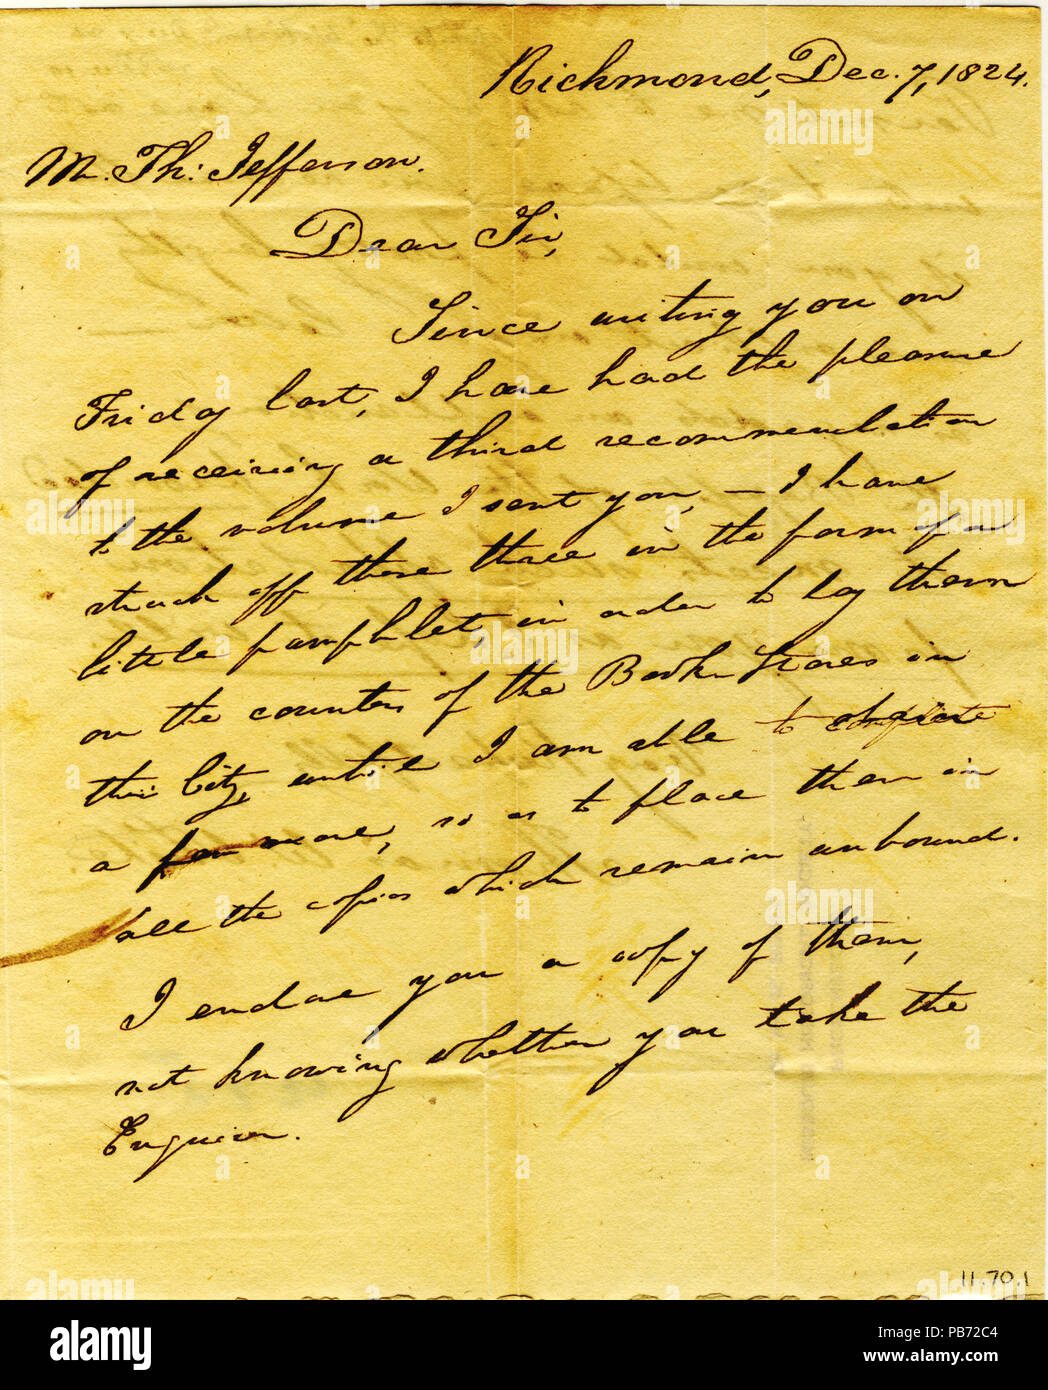 Richmond, Dec. 7, 1824.
Mr. Th: Jefferson.
Dear Sir,
Since writing you on
Friday last, I have had the pleasure
of receiving a third recommendation
to the volume I sent you, — I have
struck off these three in the form of a
little pamphlet, in order to lay them
on the counters of the Book-Stores in
this City, until I am able to
a few more, so as to place them in
all the copies which remain unbound.
I enclose you a copy of them,
not knowing whether you take the
Enquirer.
11.70.1
alamy
alamy stock photo
PB72C4
www.alamy.com